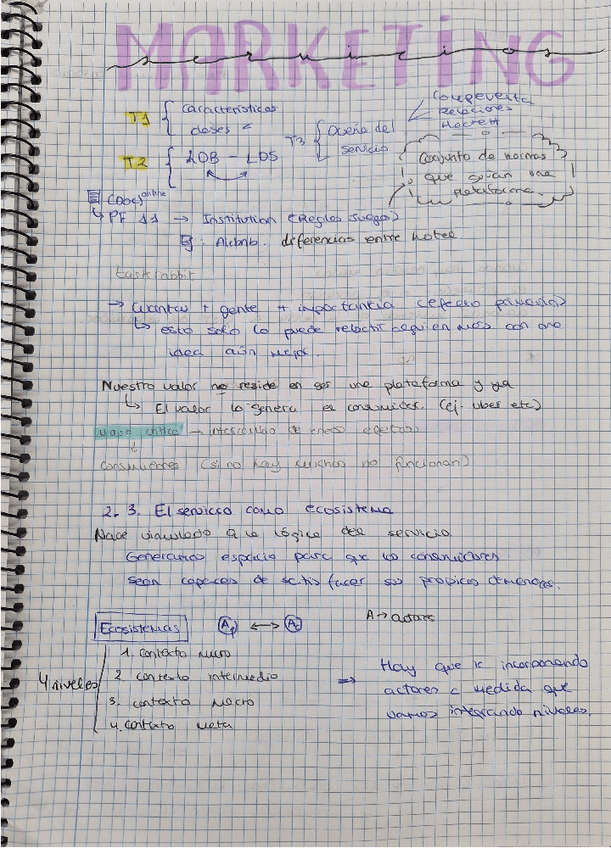 MARKETING
servicios
T1 { Características
clases
T3 { Diseño del
servicio
T2 { LDB - LDS
Conjunto de normas
que guían una
plataforma.
online
↳ PF 11 → Institution (Reglas juego)
Ej: Airbnb. diferencias entre hotel
taskrabbit
→ Cuanta + gente + importancia (efecto
↳ esto solo lo puede alguien más con una
idea aún mejor.
Nuestro valor no reside en ser una plataforma y ya
↳ El valor lo genera el consumidor. (ej: uber etc)
masa crítica → intercambio de
↓
consumidores (si no hay muchos no funcionan)
2.3. El servicio como ecosistema
Nace vinculado a la lógica del servicio.
Generamos espacio para que los consumidores
sean capaces de satisfacer sus propias demandas.
Ecosistemas A1 ↔ A2 A → actores
4 niveles
1. contexto micro
2. contexto intermedio
3. contexto macro
4. contexto meta
⇒ Hay que ir incorporando
actores a medida que
vamos integrando niveles.